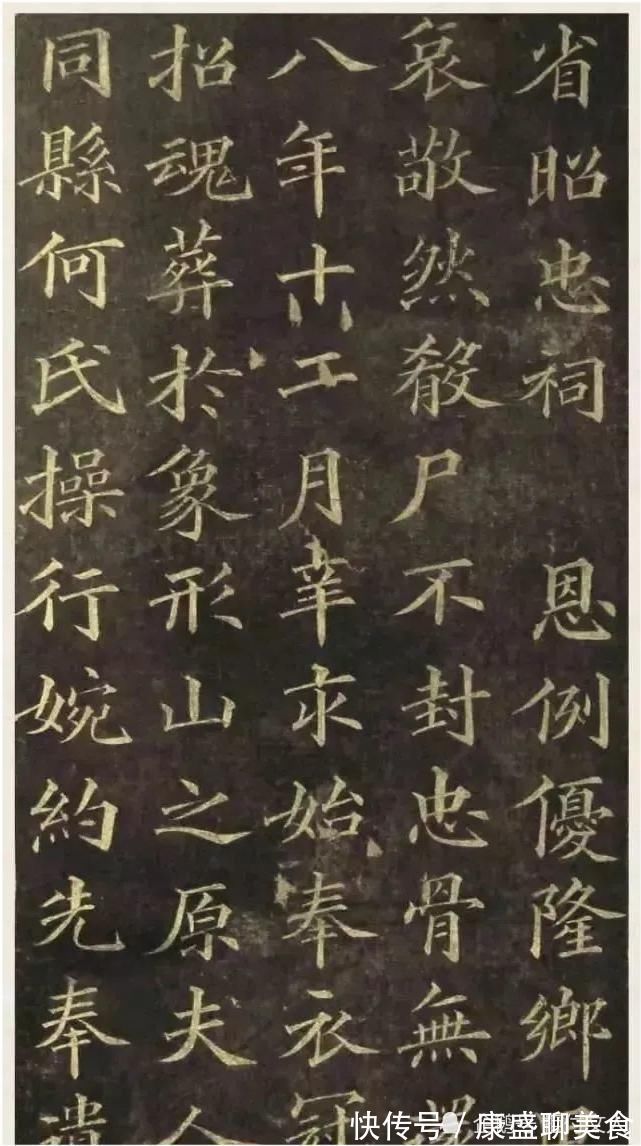 省昭忠祠 恩例優隆鄉
哀敬然殺尸不封忠骨無
八年十工月辛始奉衣冠
招魂葬於象形山之原夫人
同縣何氏操行婉約先奉遺
快传号/康盛聊美食